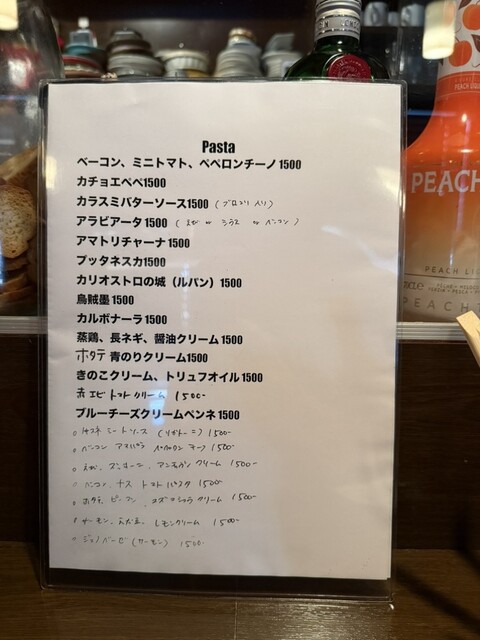 Pasta
ベーコン、ミニトマト、ペペロンチーノ1500
カチョエペペ1500
カラスミバターソース1500 (ブロッコリ入り)
アラビアータ1500 (えび or シラス or ベーコン)
アマトリチャーナ1500
プッタネスカ1500
カリオストロの城（ルパン）1500
烏賊墨1500
カルボナーラ1500
蒸鶏、長ネギ、醤油クリーム1500
ホタテ 青のりクリーム1500
きのこクリーム、トリュフオイル1500
赤エビ トマトクリーム 1500-
ブルーチーズクリームペンネ1500
ミートソース (リガトーニ) 1500-
ベーコン アスパラ ペペロンチーノ 1500-
えび、ズッキーニ、アンチョビ クリーム 1500-
ベーコン、ナス トマトパスタ 1500-
ホタテ ピーマン ユズコショウ クリーム 1500-
サーモン、レモンクリーム 1500-
ジェノベーゼ (サーモン) 1500-
PEACH
PEACH LI
PEACH